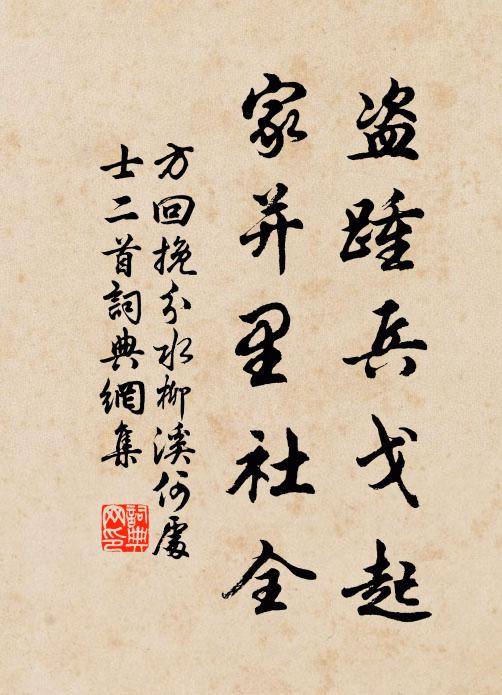 盗踵兵戈起
家并里社全
方回挽分水柳溪何處
士二首詞典網集
詞典
网印